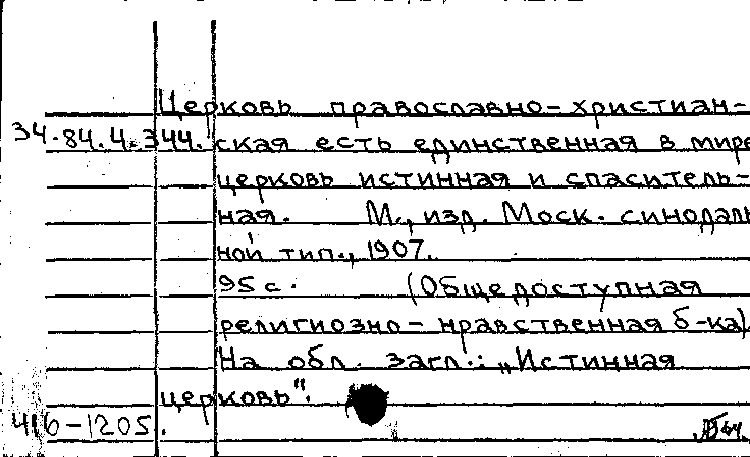 Церковь православно-христиан-
34.84.4.344. ская есть единственная в мире
церковь истинная и спаситель-
ная. М., изд. Моск. синодаль
ной тип., 1907.
95 с. (Общедоступная
религиозно-нравственная б-ка).
На обл. загл.: „Истинная
церковь".
416-1205.